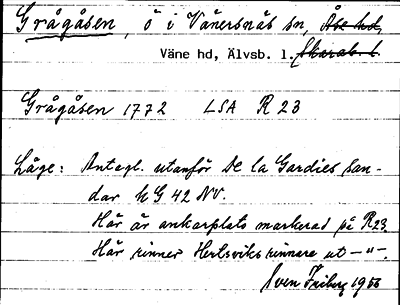 Grågåsen, ö i Vänersnäs sn, Åse hd,
Väne hd, Älvsb. l. Skarab. l.
Grågåsen 1772 LSA R 23
Läge: Antagl. utanför De la Gardies san-
dar hG 42 NV.
Här är ankarplats markerad på R23.
Här rinner Hertsviks rinnare ut —"—.
Sven Friberg 1956